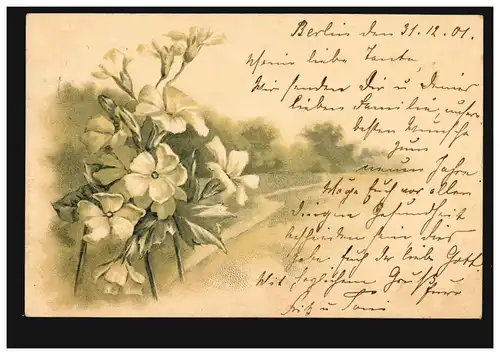 Berlin den 31.12.01.
Meine liebe Tante,
Wir senden Dir u Deiner
lieben Familie, unsere
besten Wünsche
zum
neuen Jahre
Möge Euch vor allen
Dingen Gesundheit
beschieden sein dies
gebe Euch der liebe Gott
Mit herzlichem Gruß Eure
Fritz u Toni